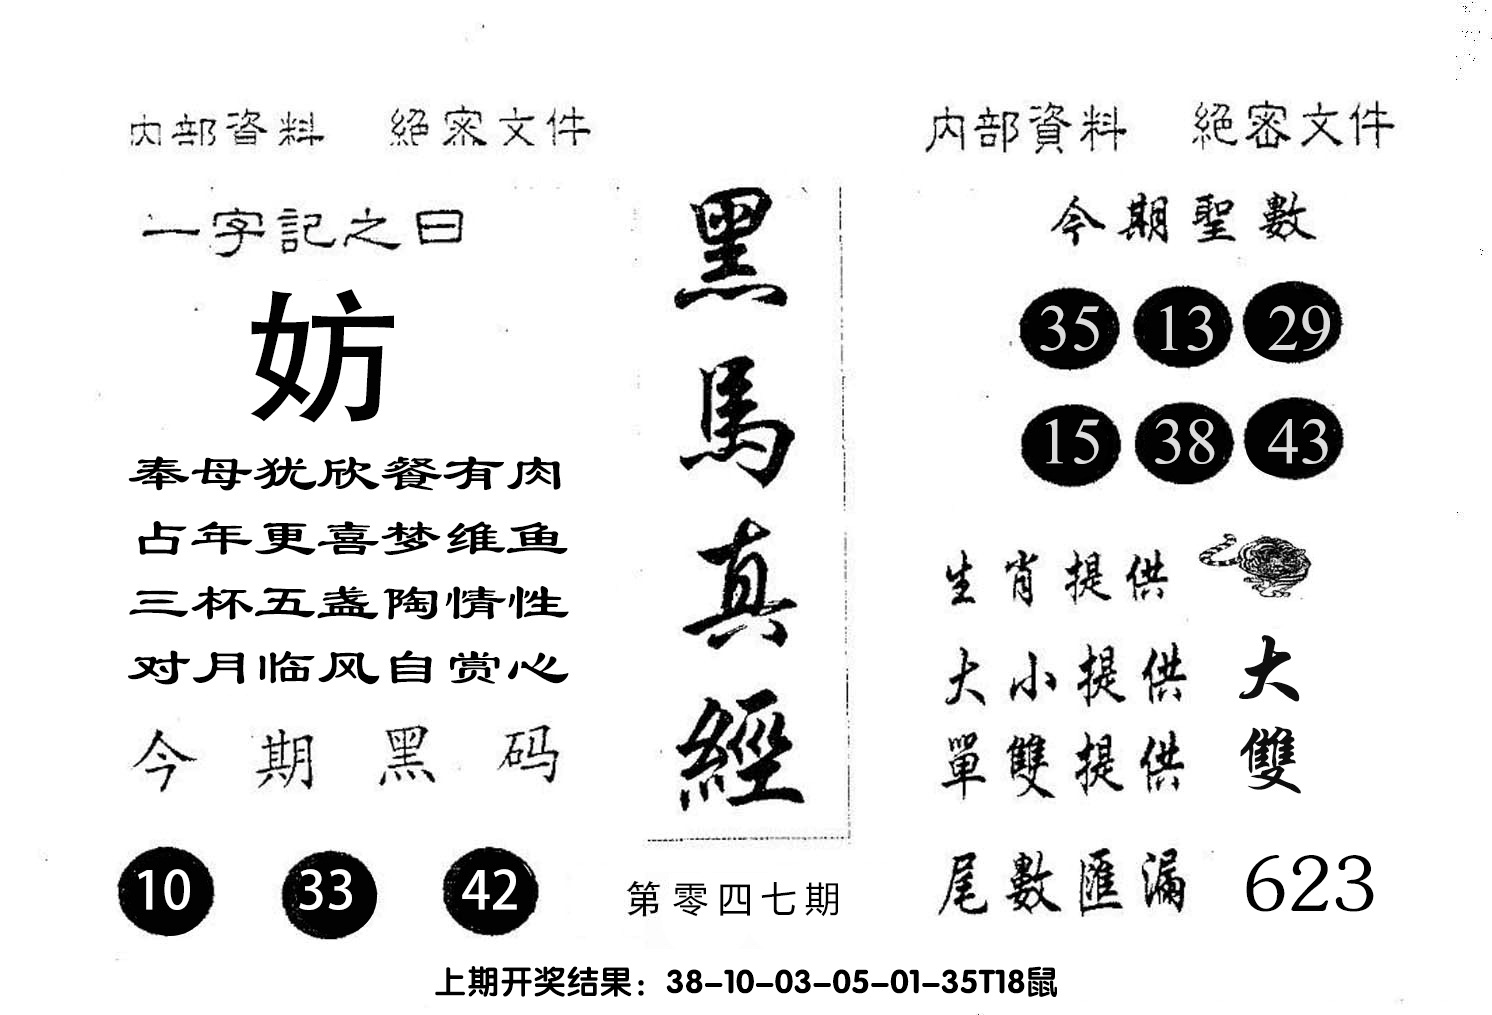 内部資料 絕密文件
一字記之曰
妨
奉母犹欣餐有肉
占年更喜梦维鱼
三杯五盏陶情性
对月临风自赏心
今期黑码
10 33 42
黑馬真經
第零四七期
内部資料 絕密文件
今期聖數
35 13 29
15 38 43
生肖提供
大小提供 大
單雙提供 雙
尾數匯漏 623
上期开奖结果：38-10-03-05-01-35T18鼠